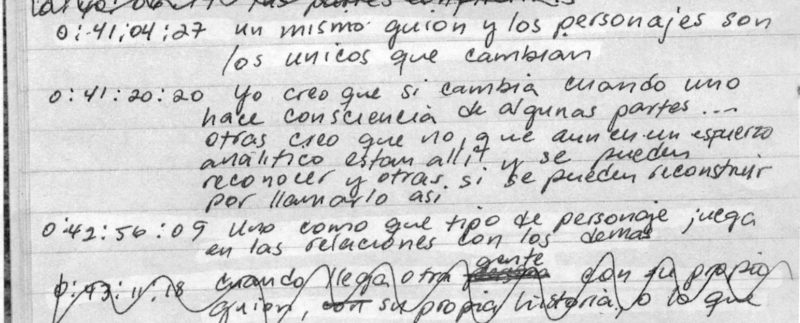 0:41:04:27 un mismo guion y los personajes son
los unicos que cambian
0:41:20:20 Yo creo que si cambia cuando uno
hace consciencia de algunas partes...
otras creo que no, que aun en un esfuerzo
analitico estan alli y se pueden
reconocer y otras si se pueden reconstruir
por llamarlo asi
0:42:56:09 Uno como que tipo de personaje juega
en las relaciones con los demas
0:43:11:18 cuando llega otra gente con su propio
guion, con su propia historia, o lo que